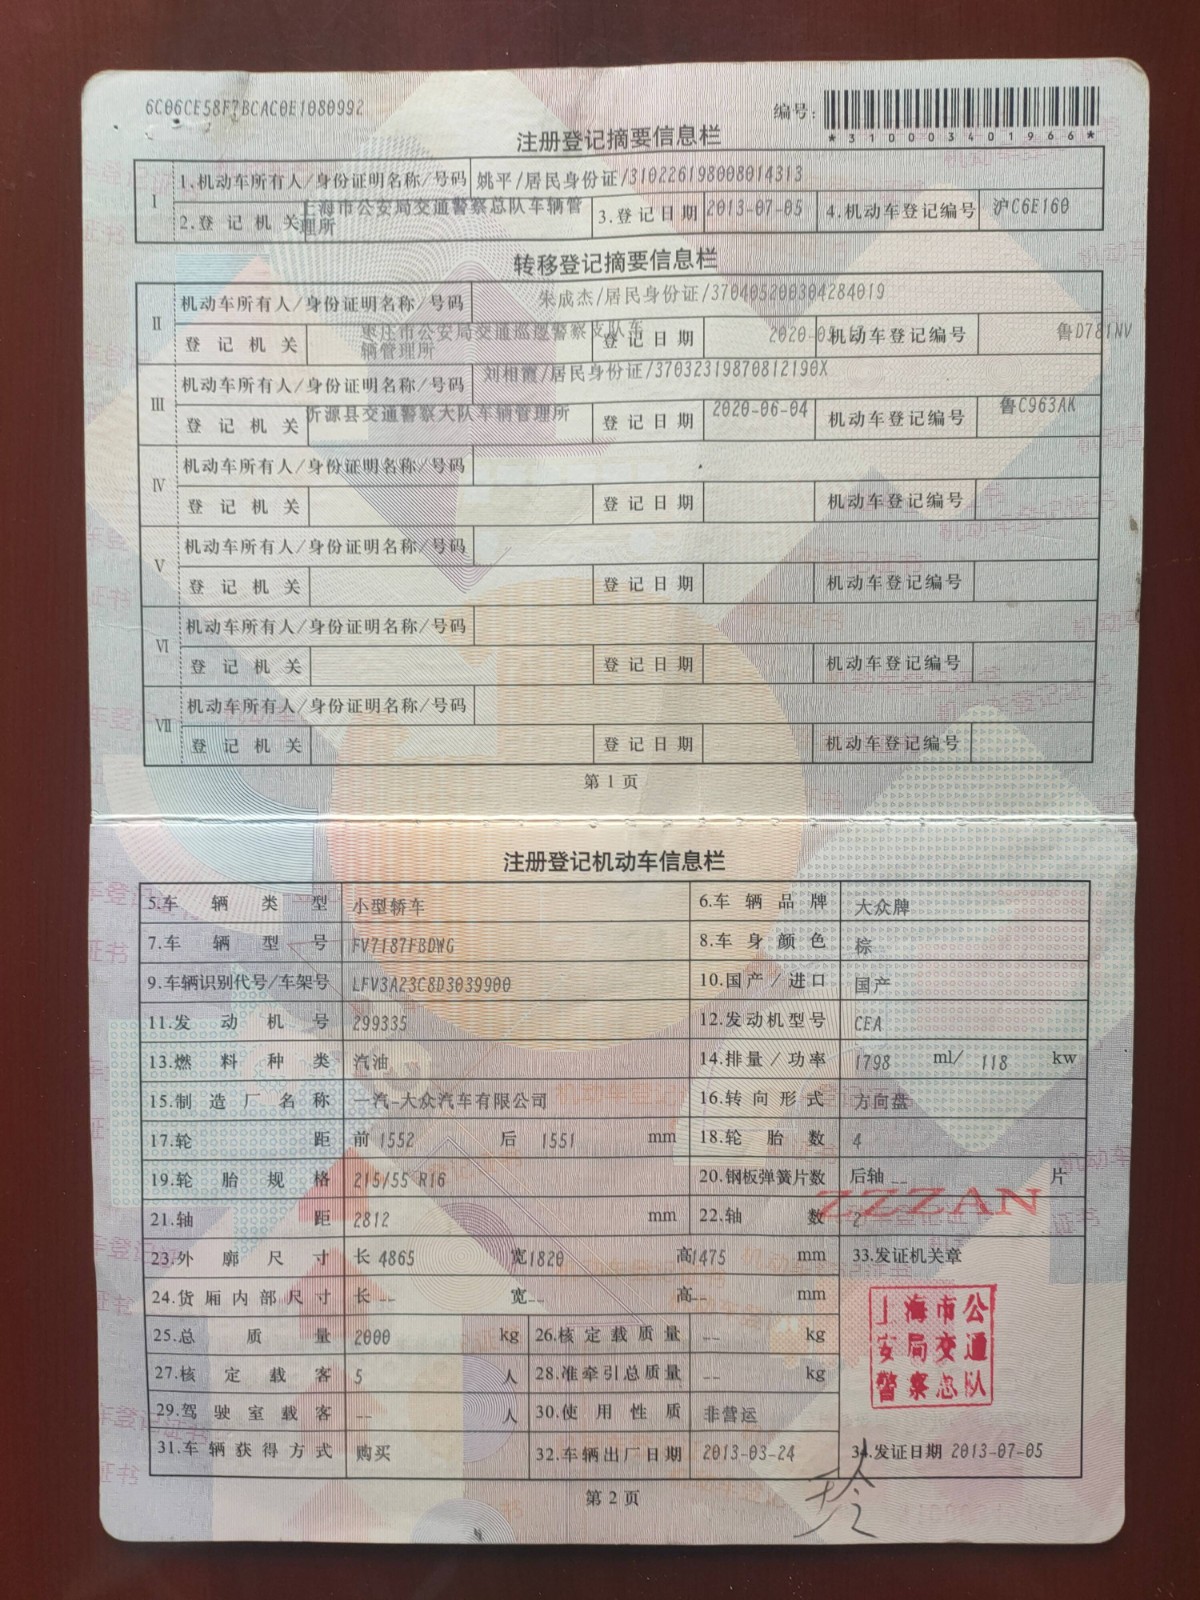 6C06CE58F7BCAC0E1080992
编号:
*310003401966*
注册登记摘要信息栏
I 1.机动车所有人/身份证明名称/号码 姚平/居民身份证/310226198008014313
2.登记机关 上海市公安局交通警察总队车辆管理所 3.登记日期 2013-07-05 4.机动车登记编号 沪C6E160
转移登记摘要信息栏
II 机动车所有人/身份证明名称/号码 朱成杰/居民身份证/370405200304284019
登记机关 枣庄市公安局交通巡逻警察支队车辆管理所 登记日期 机动车登记编号 鲁D781NV
III 机动车所有人/身份证明名称/号码 刘相霞/居民身份证/37032319870812190X
登记机关 沂源县交通警察大队车辆管理所 登记日期 2020-06-04 机动车登记编号 鲁C963AK
IV 机动车所有人/身份证明名称/号码
登记机关 登记日期 机动车登记编号
V 机动车所有人/身份证明名称/号码
登记机关 登记日期 机动车登记编号
VI 机动车所有人/身份证明名称/号码
登记机关 登记日期 机动车登记编号
VII 机动车所有人/身份证明名称/号码
登记机关 登记日期 机动车登记编号
第1页
注册登记机动车信息栏
5.车辆类型 小型轿车 6.车辆品牌 大众牌
7.车辆型号 FV7187FBDWG 8.车身颜色 棕
9.车辆识别代号/车架号 LFV3A23C8D3039900 10.国产/进口 国产
11.发动机号 299335 12.发动机型号 CEA
13.燃料种类 汽油 14.排量/功率 1798 ml/ 118 kw
15.制造厂名称 一汽-大众汽车有限公司 16.转向形式 方向盘
17.轮距 前 1552 后 1551 mm 18.轮胎数 4
19.轮胎规格 215/55 R16 20.钢板弹簧片数 后轴 -- 片
ZZZZAN
21.轴距 2812 mm 22.轴数 2
23.外廓尺寸 长 4865 宽 1820 高 1475 mm 33.发证机关章
24.货厢内部尺寸 长 -- 宽 -- 高 -- mm
上海市公
安局交通
警察总队
25.总质量 2000 kg 26.核定载质量 -- kg
27.核定载客 5 人 28.准牵引总质量 -- kg
29.驾驶室载客 -- 人 30.使用性质 非营运
31.车辆获得方式 购买 32.车辆出厂日期 2013-03-24 34.发证日期 2013-07-05
第2页